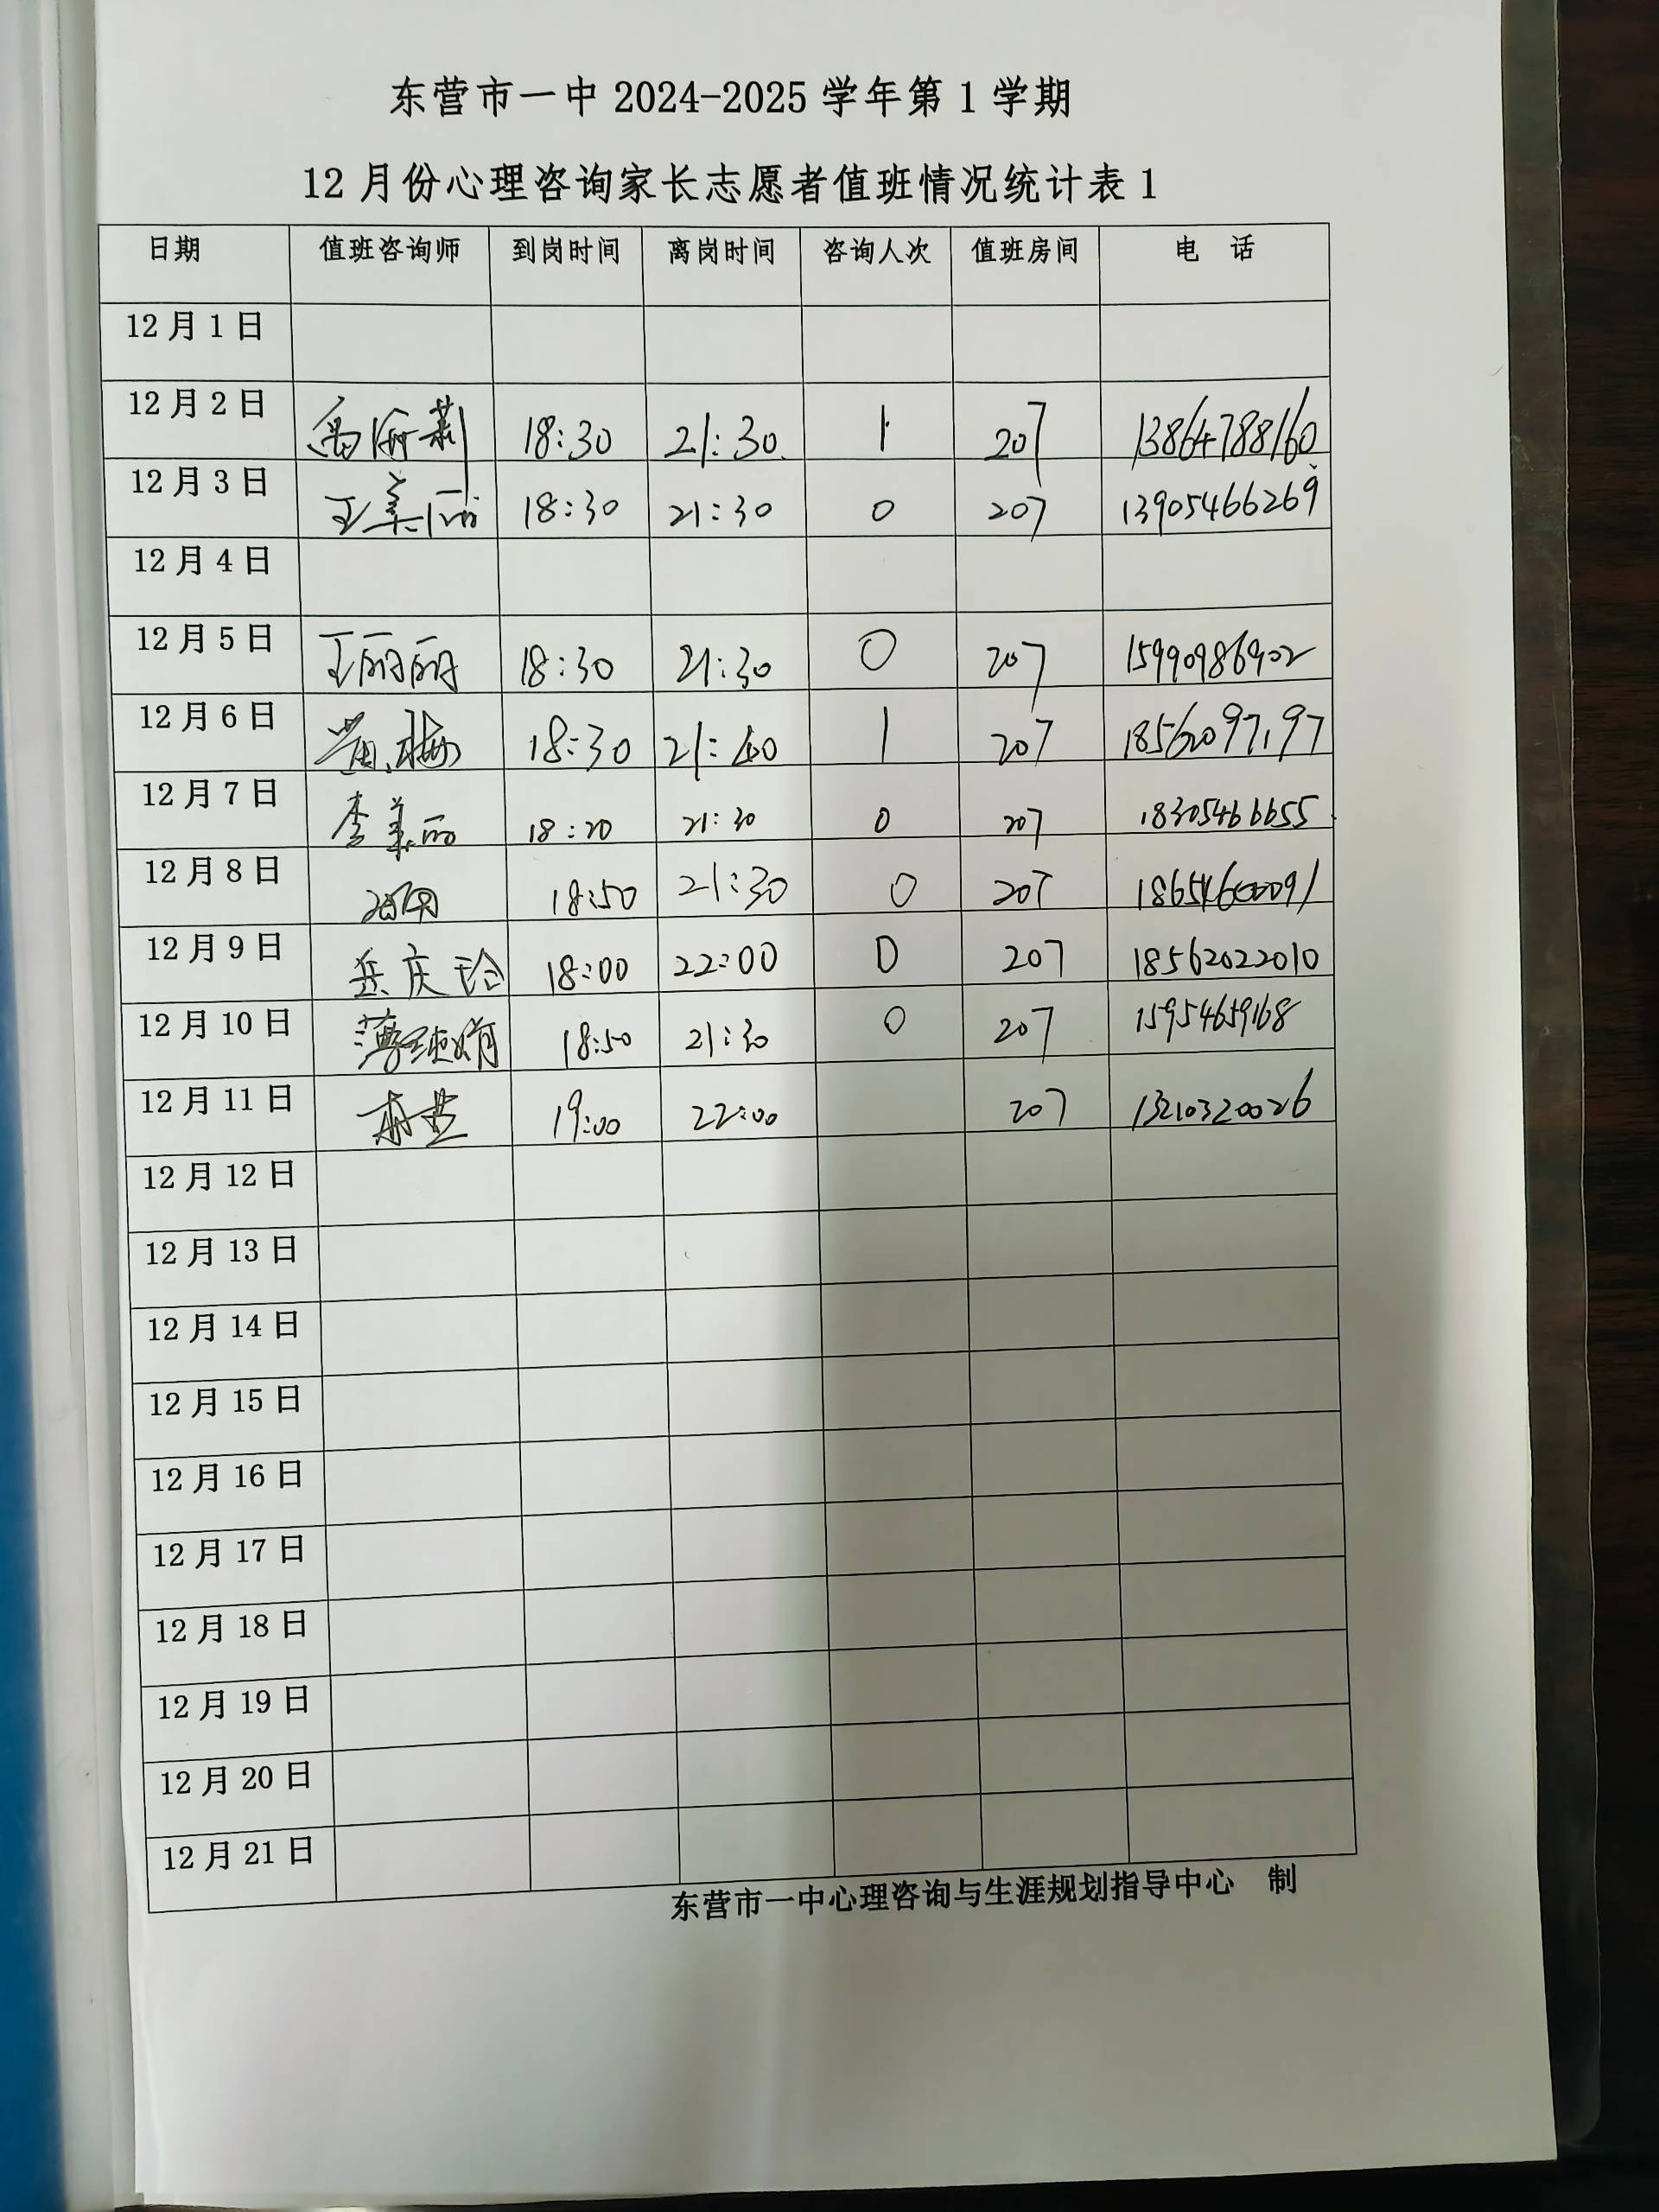 东营市一中 2024-2025 学年第 1 学期
12 月份心理咨询家长志愿者值班情况统计表 1
日期 值班咨询师 到岗时间 离岗时间 咨询人次 值班房间 电 话
12 月 1 日
12 月 2 日 18:30 21:30 1 207 13864788160
12 月 3 日 王美丽 18:30 21:30 0 207 13905466269
12 月 4 日
12 月 5 日 王丽丽 18:30 21:30 0 207 15990986902
12 月 6 日 黄梅 18:30 21:40 1 207
12 月 7 日 李美丽 18:20 21:30 0 207 18305466655
12 月 8 日 18:50 21:30 0 207 18654600091
12 月 9 日 岳庆玲 18:00 22:00 0 207 18562022010
12 月 10 日 18:50 21:30 0 207 15954659168
12 月 11 日 19:00 22:00 207 13210320026
12 月 12 日
12 月 13 日
12 月 14 日
12 月 15 日
12 月 16 日
12 月 17 日
12 月 18 日
12 月 19 日
12 月 20 日
12 月 21 日
东营市一中心理咨询与生涯规划指导中心 制